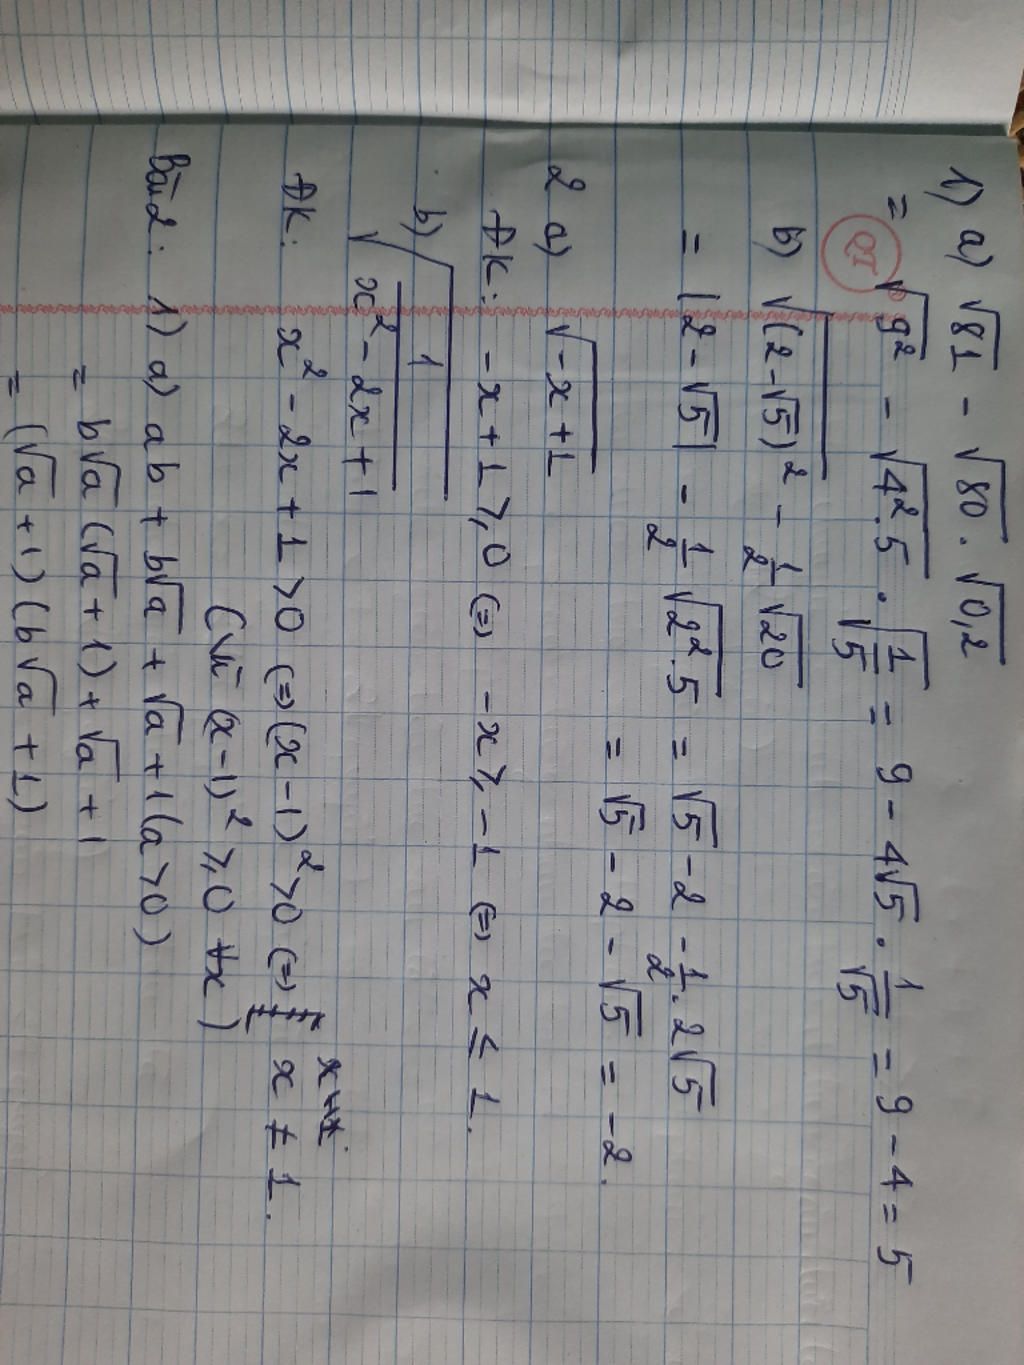 1) a) √81 - √80 . √0,2
= √9² - √4².5 . √1/√5 = 9 - 4√5 . 1/√5 = 9 - 4 = 5
b) √(2-√5)² - 1/2 √20
= |2-√5| - 1/2 √2².5 = √5 - 2 - 1/2 . 2√5
= √5 - 2 - √5 = -2.
2 a) √-x+1
ĐK: -x+1 ⩾ 0 (=) -x ⩾ -1 (=) x ≤ 1.
b) √1/x²-2x+1
ĐK: x² - 2x + 1 > 0 (=) (x-1)² > 0 (=) x ≠ 1.
(Vì (x-1)² ⩾ 0 ∀x)
Bài 2: 1) a) ab + b√a + √a + 1 (a > 0)
= b√a (√a + 1) + √a + 1
= (√a + 1) (b√a + 1)